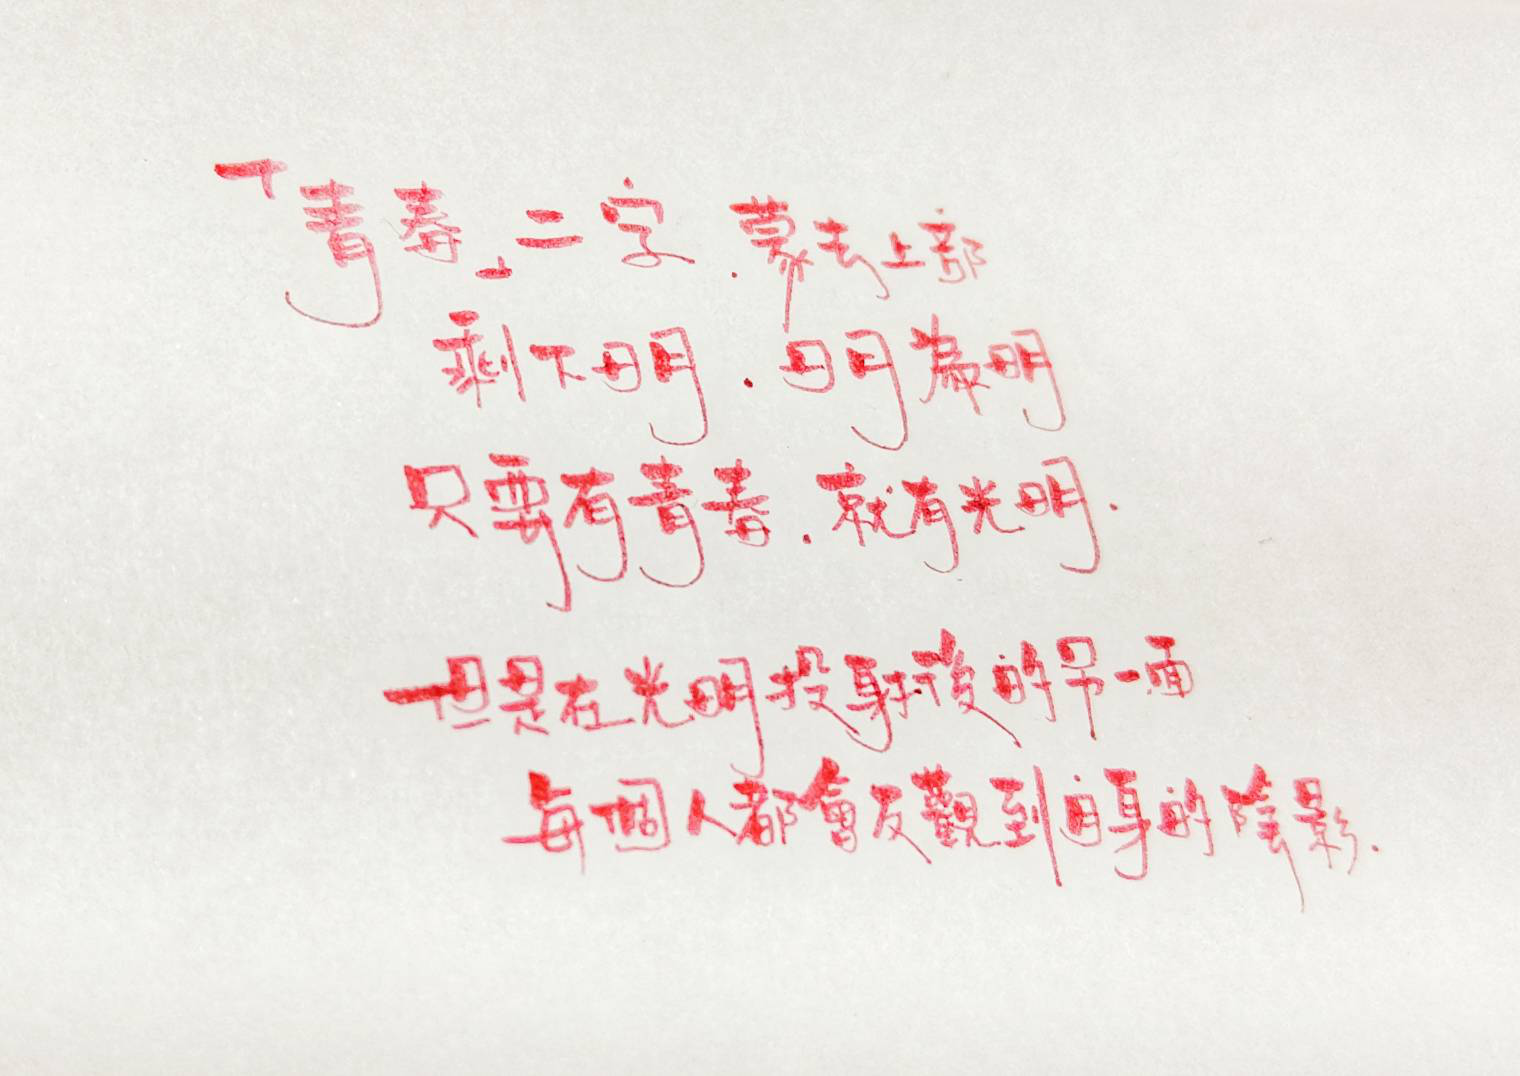 「青春」二字.蒙去上部
剩下日月.日月為明
只要有青春.就有光明.
但是在光明投射後的另一面
每個人都會反觀到自身的陰影.